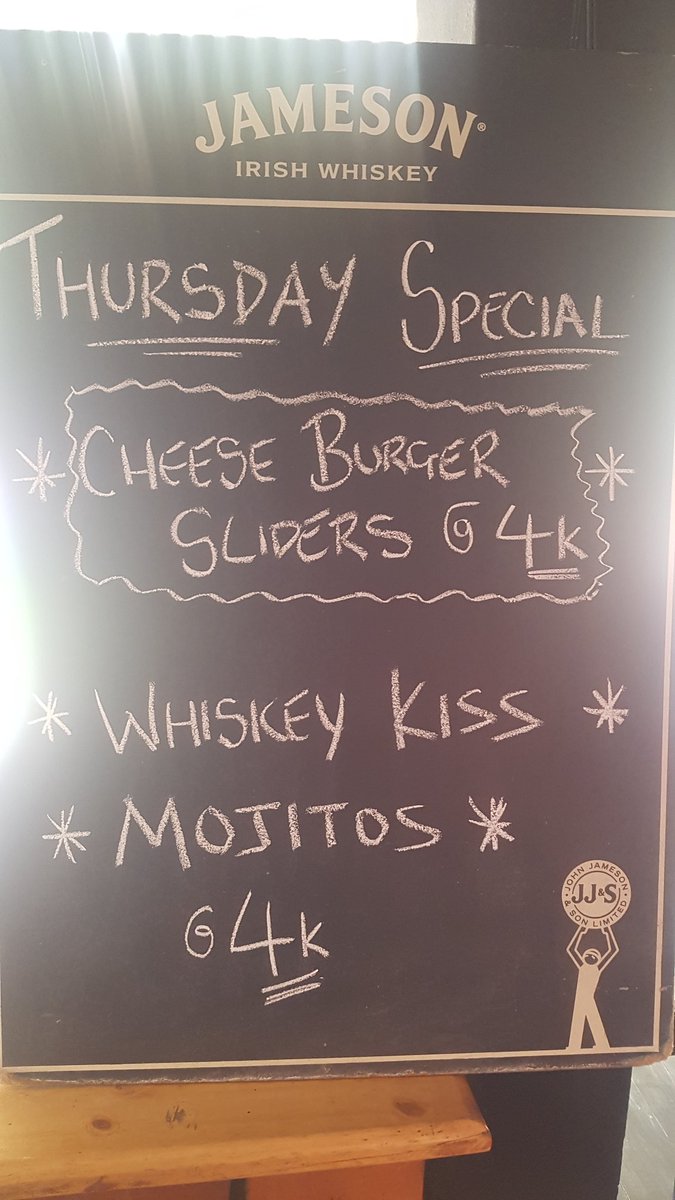 JAMESON®
IRISH WHISKEY
THURSDAY SPECIAL
* CHEESE BURGER *
SLIDERS @ 4K
* WHISKEY KISS *
* MOJITOS *
@ 4K
JOHN JAMESON
JJ&S
& SON LIMITED